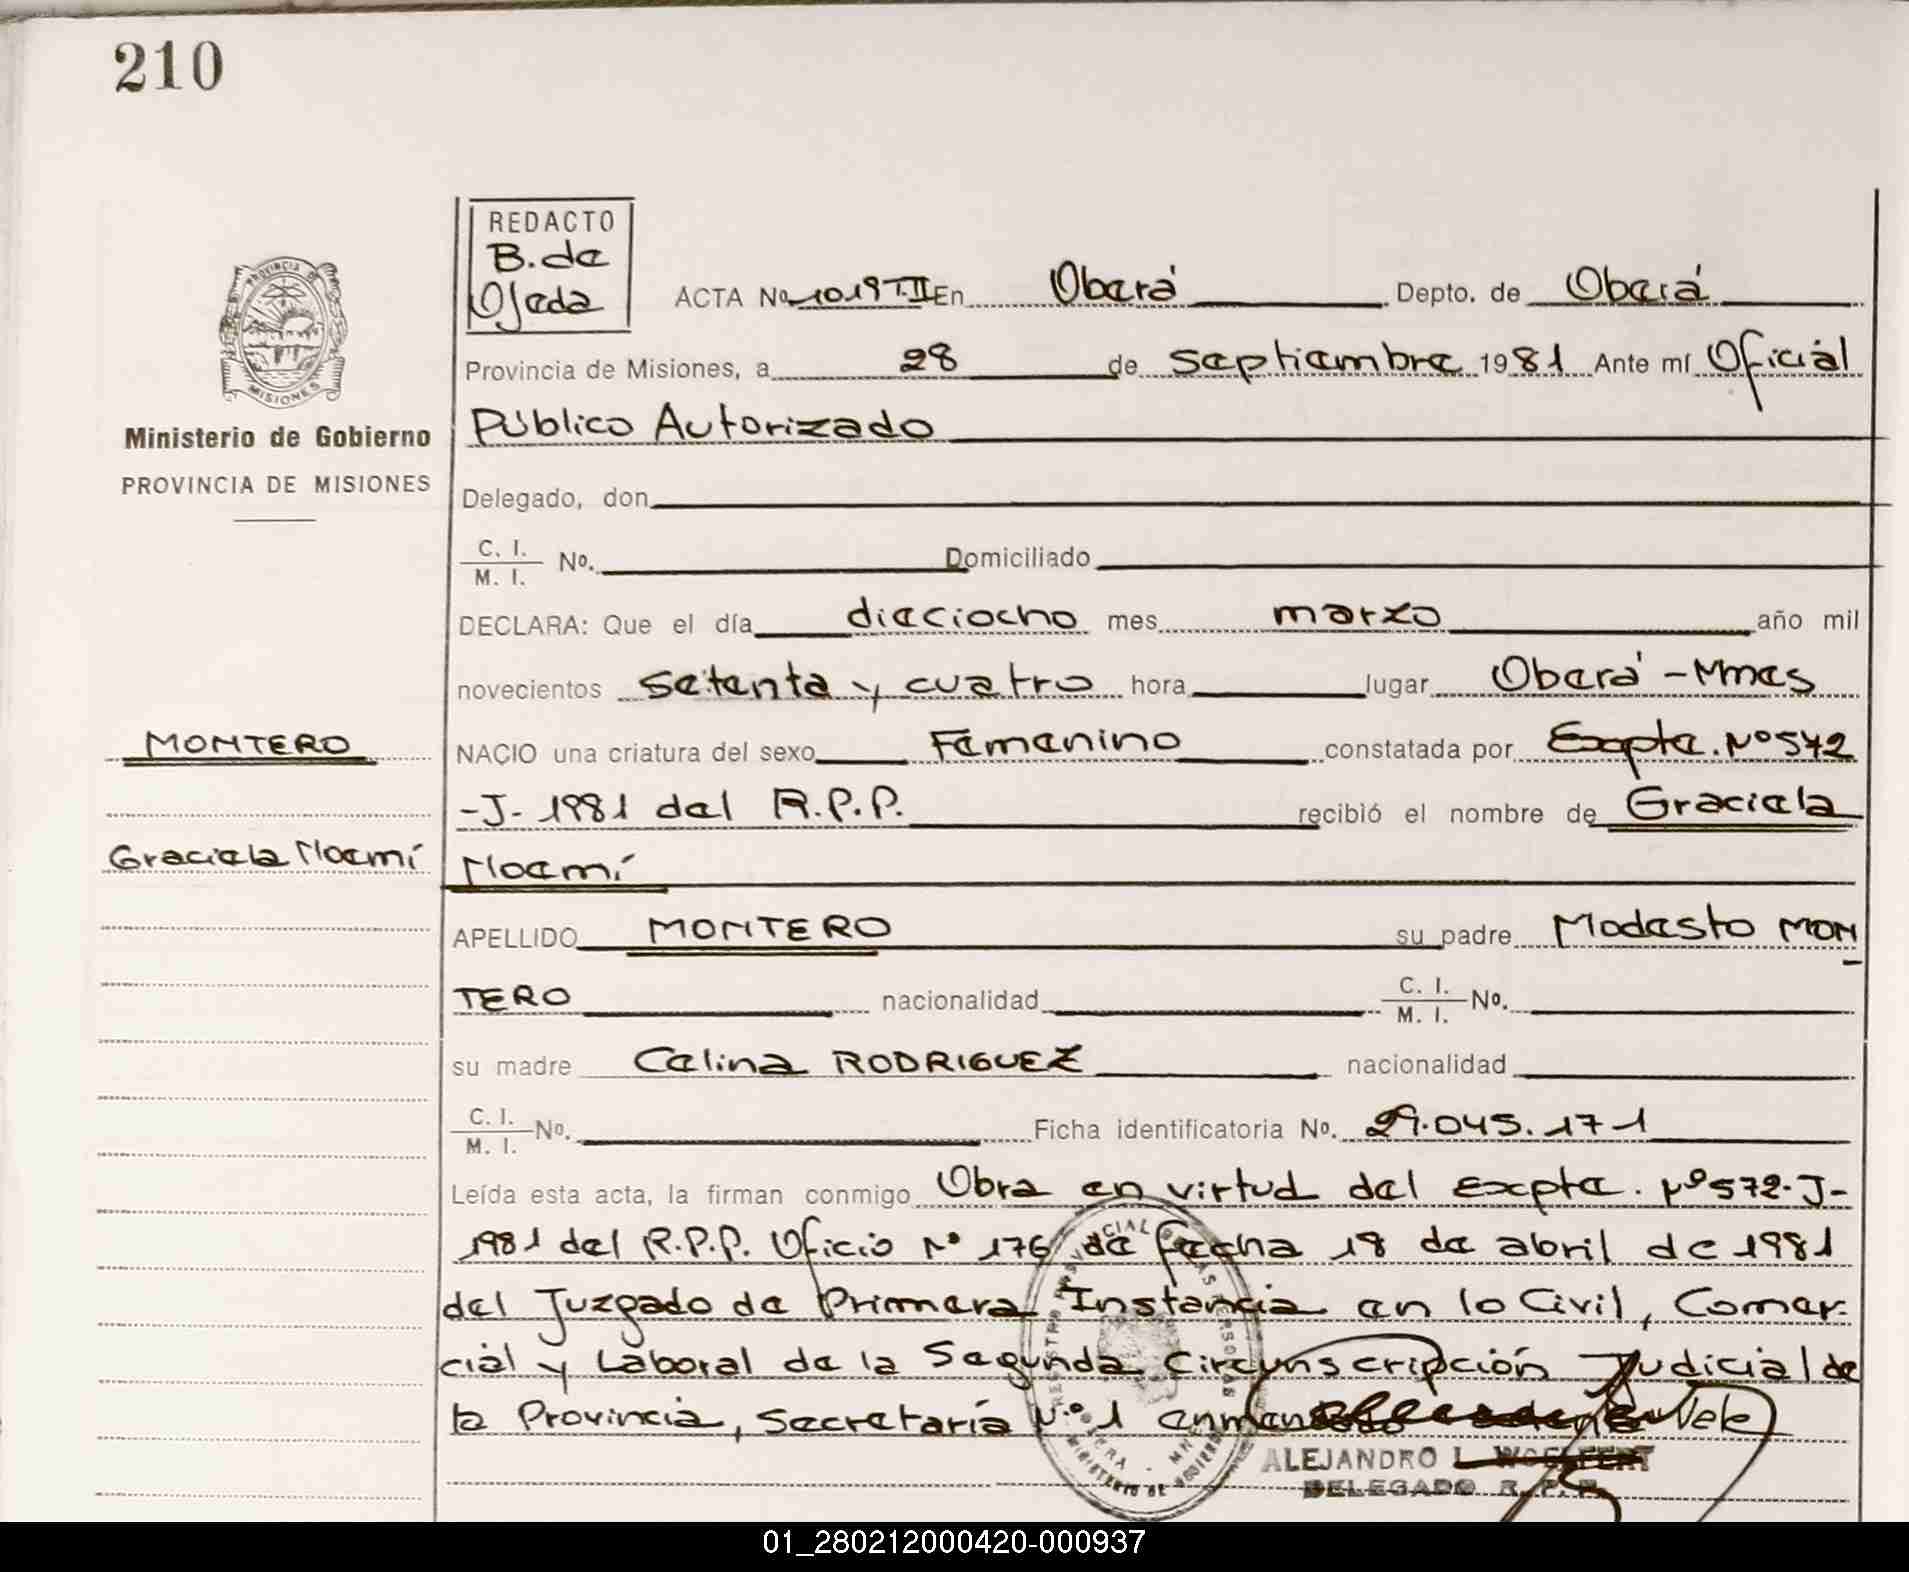 210
REDACTO
B. de
Ojeda
ACTA No 1019 T.II En Oberá Depto. de Oberá
Provincia de Misiones, a 28 de septiembre 1981 Ante mí Oficial
Público Autorizado
Ministerio de Gobierno
PROVINCIA DE MISIONES
Delegado, don
C. I.
M. I. No. Domiciliado
DECLARA: Que el día dieciocho mes marzo año mil
novecientos setenta y cuatro hora lugar Oberá - Mnes
MONTERO
NACIO una criatura del sexo Femenino constatada por Expte. Nº 572
-J- 1981 del R.P.P. recibió el nombre de Graciela
Graciela Noemí
Noemí
APELLIDO MONTERO su padre Modesto MON
TERO nacionalidad C. I.
M. I. No.
su madre Celina RODRIGUEZ nacionalidad
C. I.
M. I. No. Ficha identificatoria No. 29.045.171
Leída esta acta, la firman conmigo Obra en virtud del Expte. Nº 572-J-
1981 del R.P.P. Oficio Nº 176 de fecha 18 de abril de 1981
del Juzgado de Primera Instancia en lo Civil, Comer-
cial y Laboral de la Segunda Circunscripción Judicial de
la Provincia, Secretaría N.º 1 Vale
ALEJANDRO L. WOELFERT
DELEGADO R. P. P.
01_280212000420-000937